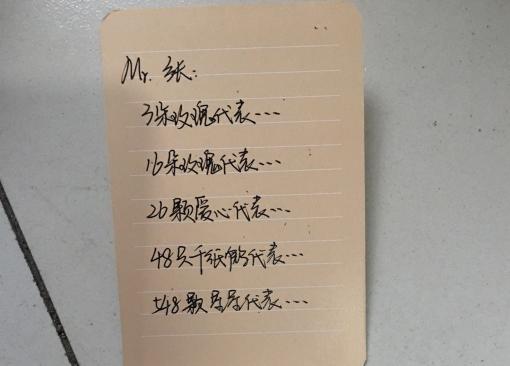 Mr. 张:
3朵玫瑰代表---
16朵玫瑰代表---
26颗爱心代表---
48只千纸鹤代表---
148颗星星代表---